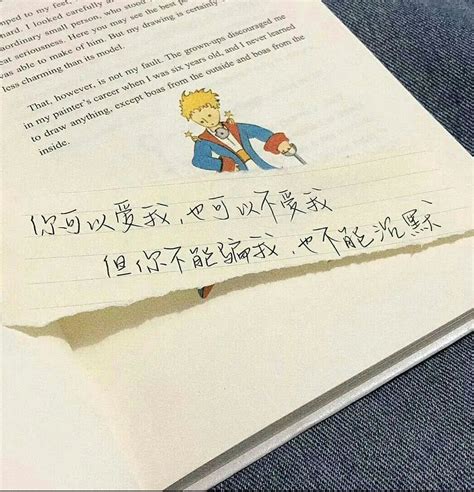 mped to my feet,
hard. I looked carefully a
aordinary small person, who stood
eat seriousness. Here you may see the best p
was able to make of him. But my drawing is certainly
less charming than its model.
That, however, is not my fault. The grown-ups discouraged me
in my painter's career when I was six years old, and I never learned
to draw anything, except boas from the outside and boas from the
inside.
你可以爱我,也可以不爱我
但你不能骗我,也不能沉默